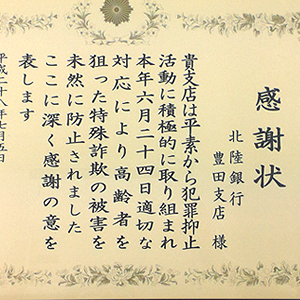 感謝状
北陸銀行
豊田支店 様
貴支店は平素から犯罪抑止
活動に積極的に取り組まれ
本年六月二十四日適切な
対応により高齢者を
狙った特殊詐欺の被害を
未然に防止されました
ここに深く感謝の意を
表します
平成二十八年七月五日